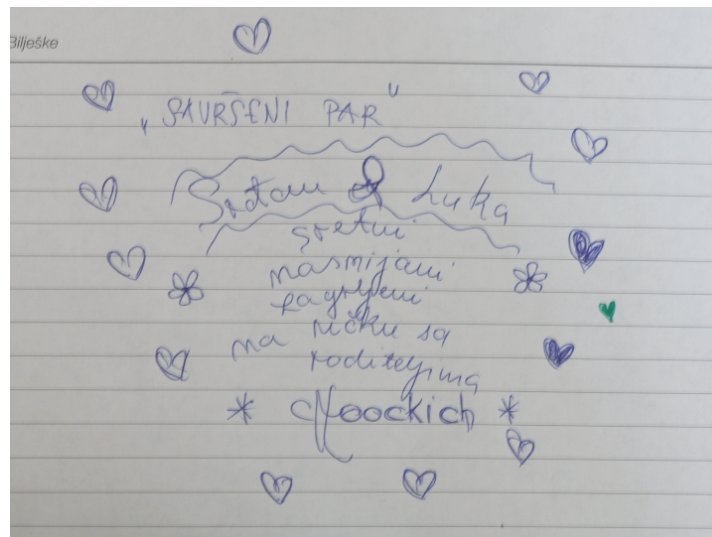 Bilješke
„SAVRŠENI PAR"
Srđan & Luka
sretni
nasmijani
zagrljeni
na ručku sa
roditeljima
* Noockich *